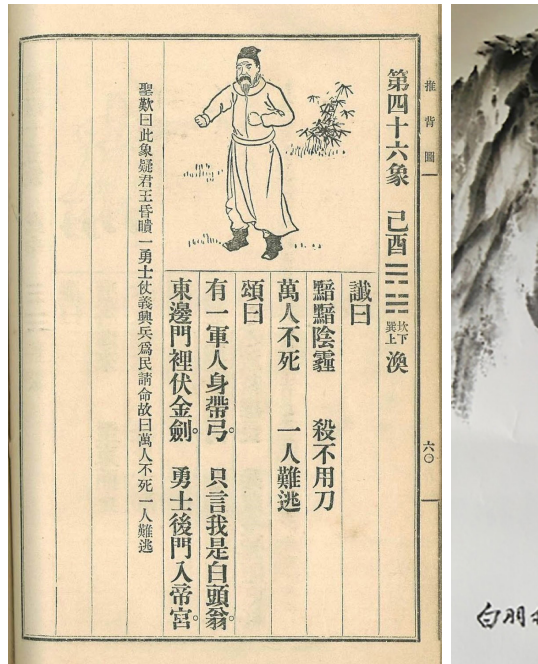 推背圖
六〇
第四十六象 己酉 坎下巽上 渙
讖曰
黯黯陰霾 殺不用刀
萬人不死 一人難逃
頌曰
有一軍人身帶弓。 只言我是白頭翁。
東邊門裡伏金劍。 勇士後門入帝宮。
聖歎曰此象疑君王昏瞶一勇士仗義興兵爲民請命故曰萬人不死一人難逃
白羽